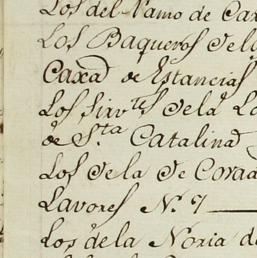 Los del Ramo de Cax
Los Baqueros de la
Caxa de Estancias
Los Sirvtes de la
de Sta Catalina
Los de la de
Lavores N. 7
Los de la Noria de